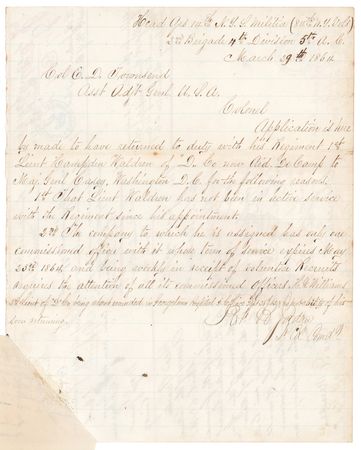 Head Qrs 14th N.Y.S. Militia (84th N.Y. Vols)
2nd Brigade 4th Division 5th A.C.
March 29th 1864
Col E. D. Townsend
Asst Adjt Genl U.S.A.
Colonel
Application is here
by made to have returned to duty with his Regiment 1st
Lieut Hampden Waldron of D. Co now Aid De Camp to
Maj Genl Casey, Washington D.C. for the following reasons
1st That Lieut Waldron has not been in active service
with the Regiment since his appointment.
2nd The company to which he is assigned has only one
commissioned officer with it whose term of service expires May
23rd 1864, and being weekly in receipt of volunteer Recruits
requires the attention of all its commissioned officers
Lieut of Co being wounded in Georgetown Hospital of his
soon returning.